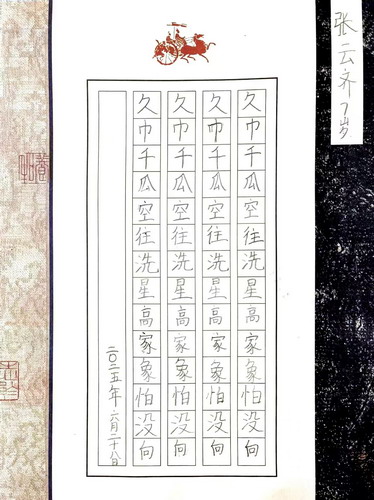 张云齐7岁
久巾千瓜空往洗星高家象怕没向
久巾千瓜空往洗星高家象怕没向
久巾千瓜空往洗星高家象怕没向
久巾千瓜空往洗星高家象怕没向
二〇二五年六月二十八日